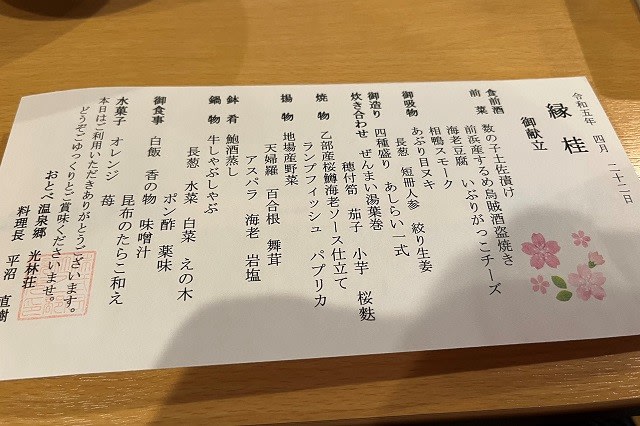 令和五年 四月 二十二日
縁桂
御献立
食前酒
前菜 数の子土佐漬け
前浜産するめ烏賊酒盗焼き
海老豆腐 いぶりがっこチーズ
相鴨スモーク
御吸物 あぶり目ヌキ
長葱 短冊人参 絞り生姜
御造り 四種盛り あしらい一式
炊き合わせ ぜんまい湯葉巻
穂付筍 茄子 小芋 桜麩
焼物 乙部産桜鱒海老ソース仕立て
ランアフィッシュ パプリカ
揚物 地場産野菜
天婦羅 百合根 舞茸
アスパラ 海老 岩塩
鉢肴 鮑酒蒸し
鍋物 牛しゃぶしゃぶ
長葱 水菜 白菜 えの木
ポン酢 薬味
御食事 白飯 香の物 味噌汁
昆布のたらこ和え
水菓子 オレンジ 苺
本日はご利用いただきありがとうございます。
どうぞごゆっくりとご賞味くださいませ。
おとべ温泉郷 光林荘
料理長 平沼 直樹